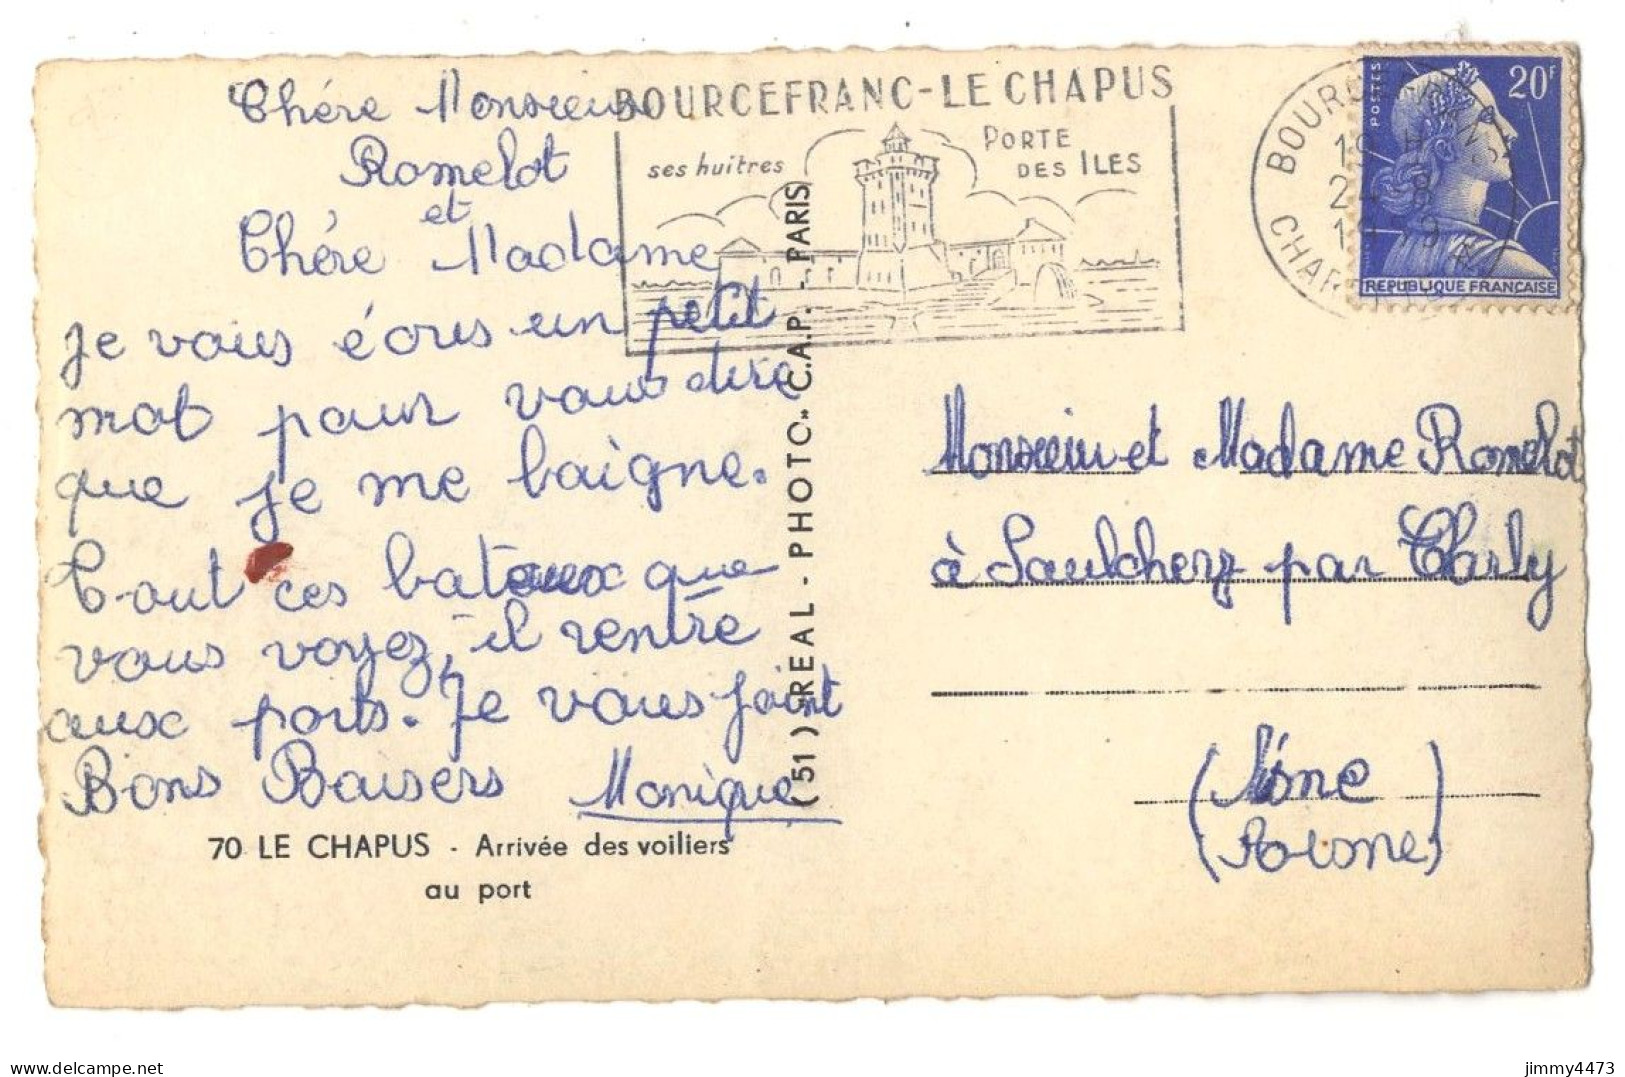 Chére Monsieur
Romelot
et
Chére Madame
Je vous écris un petit
mot pour vous dire
que je me baigne.
Tout ces bateaux que
vous voyez, il rentre
aux ports. Je vous joint
Bons Baisers Monique
70 LE CHAPUS - Arrivée des voiliers
au port
(51) "REAL-PHOTO" C.A.P. - PARIS
BOURCEFRANC-LE CHAPUS
ses huîtres
PORTE
DES ILES
19 H
24 - 8
POSTES
20F
REPUBLIQUE FRANÇAISE
Monsieur et Madame Romelot
à Saulchery par Charly
(Aisne)
(Aisne)
jimmy4473